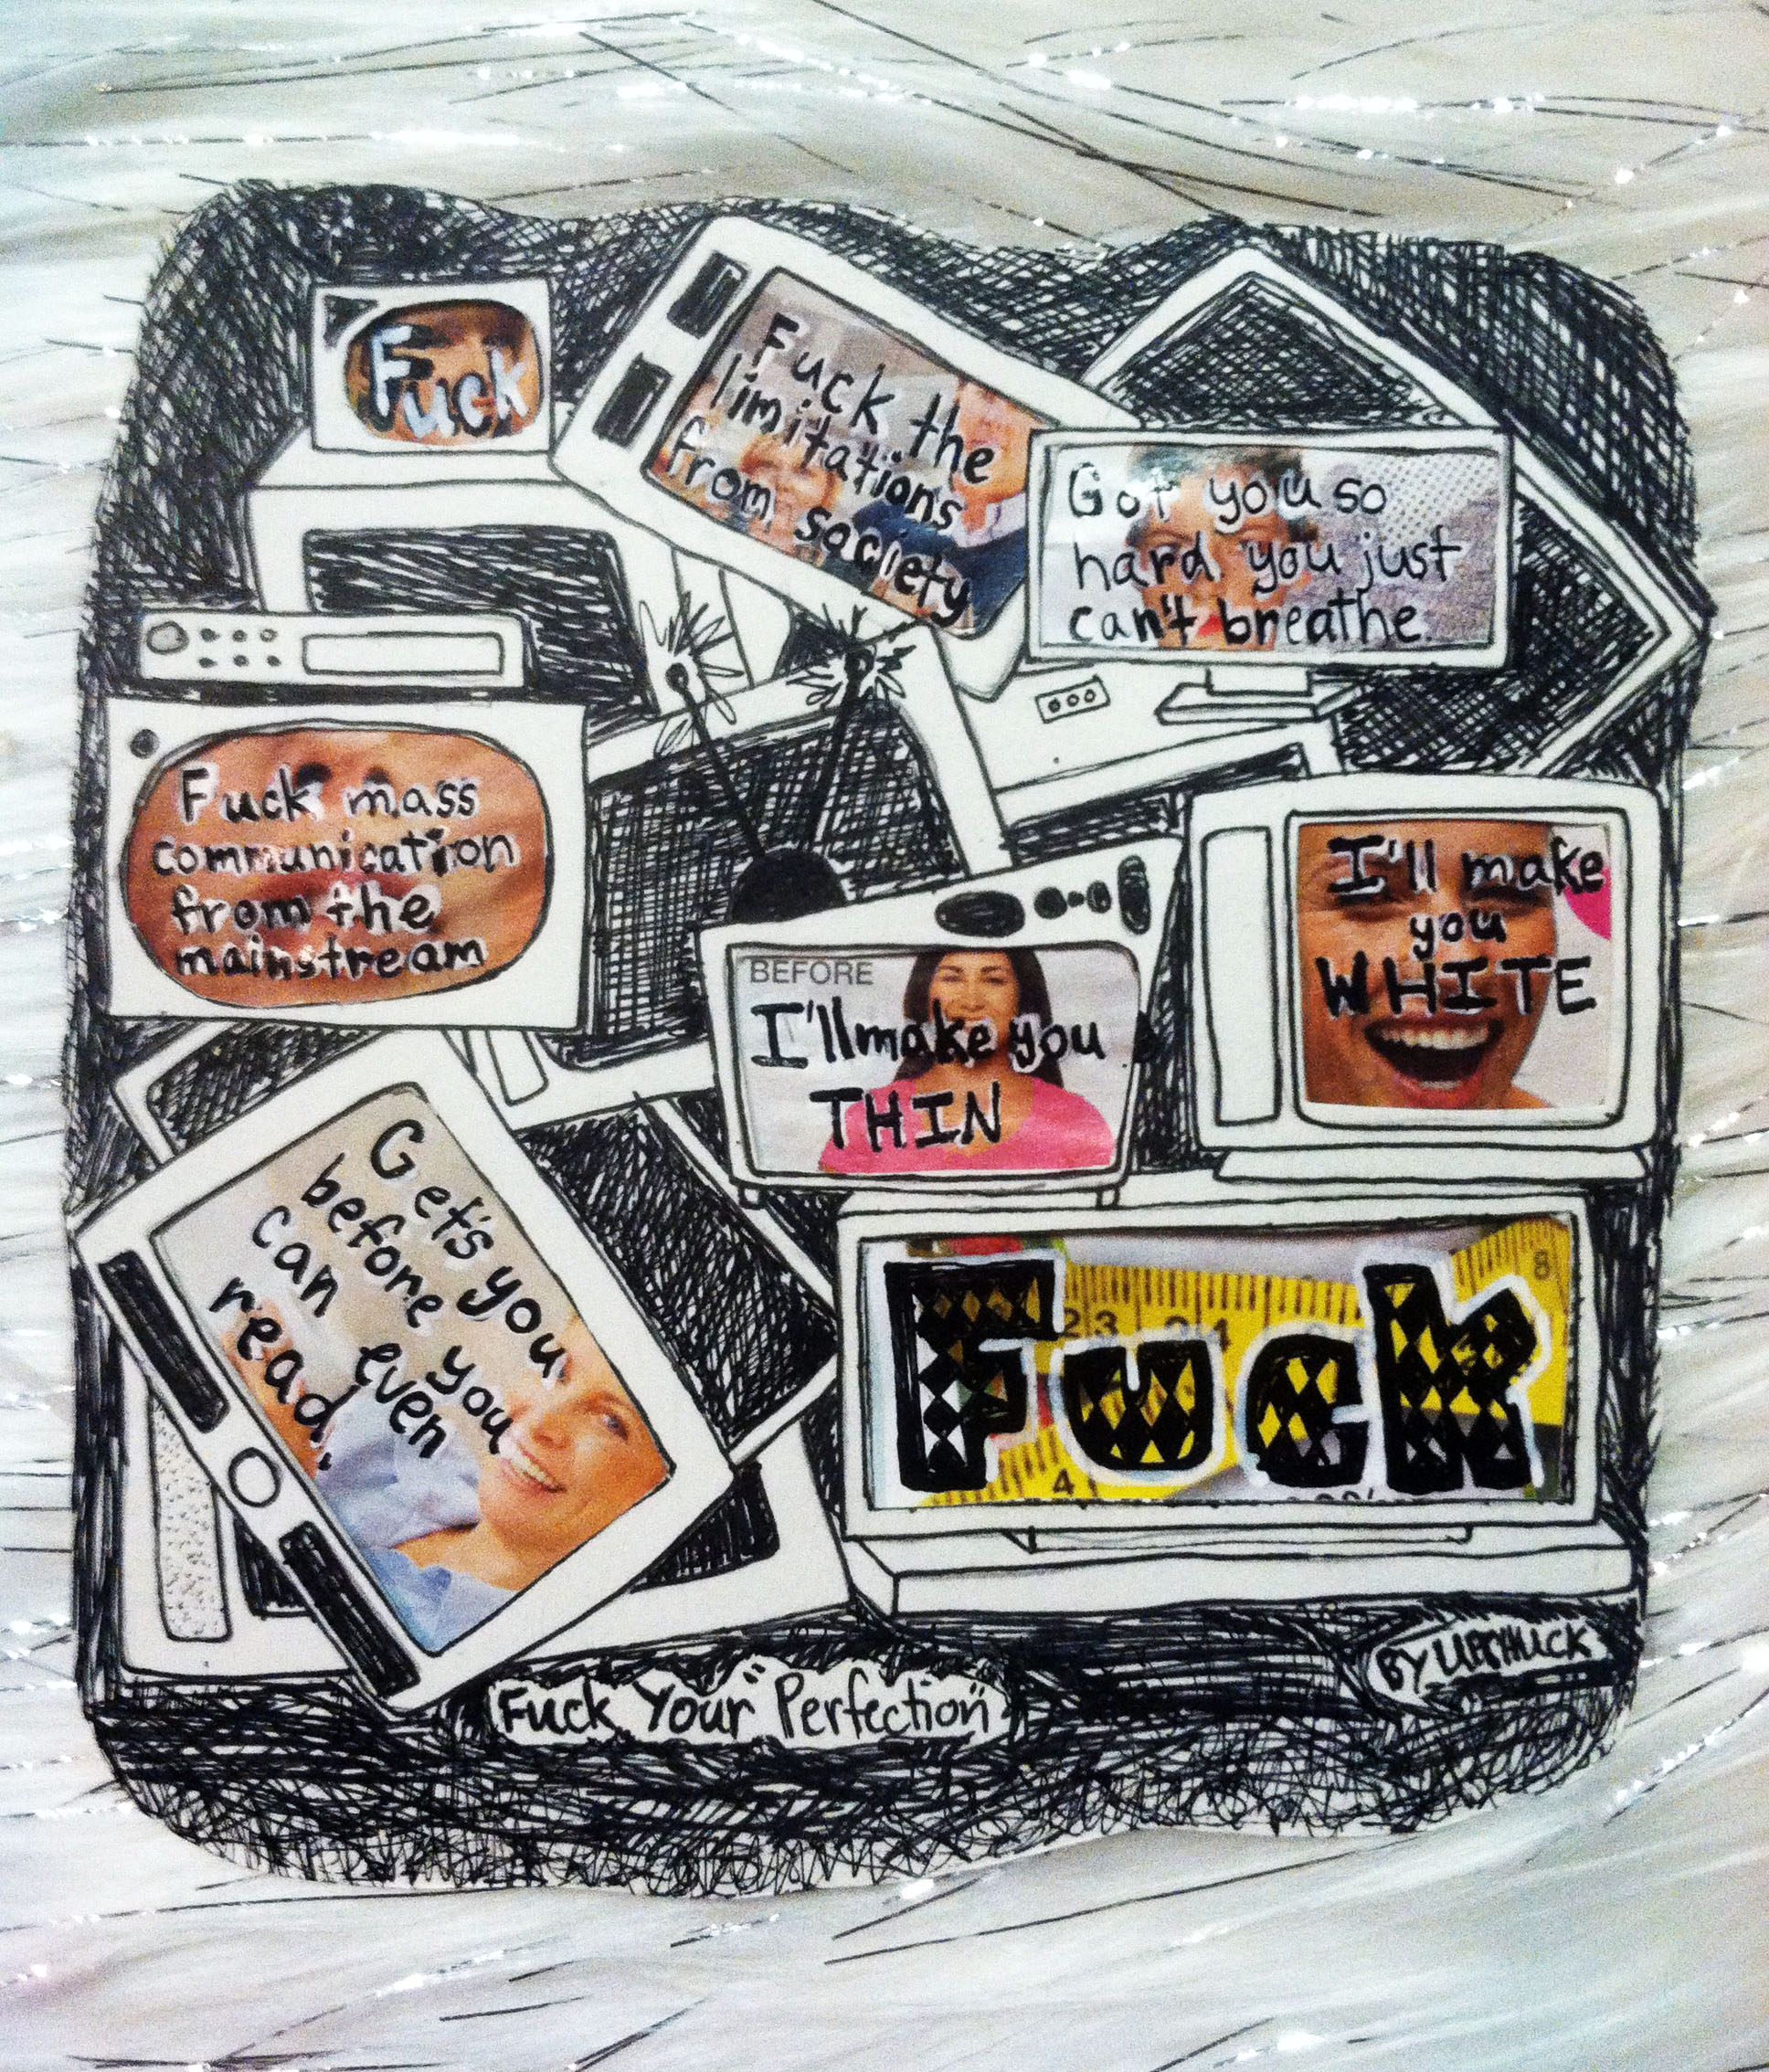 Fuck
Fuck the
limitations
from society
Got you so
hard you just
can't breathe.
Fuck mass
communication
from the
mainstream
I'll make
you
WHITE
BEFORE
I'll make you
THIN
Get's you
before you
can even
read.
8
23
24
4
Fuck
Fuck Your "Perfection"
BY UPCHUCK